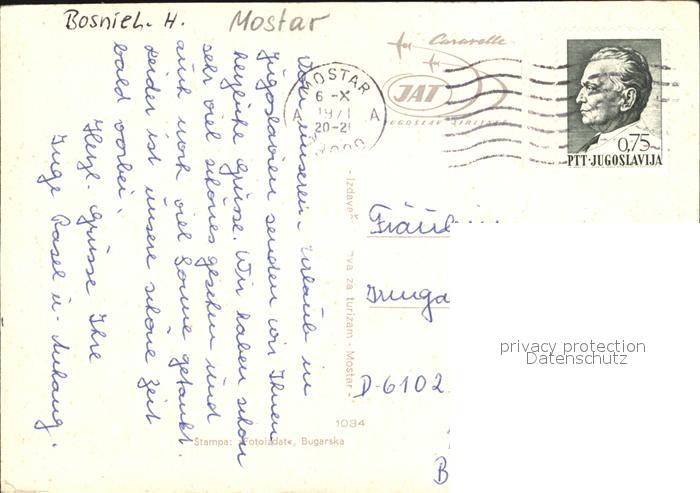 Bosnieh. H. Mostar
Caravelle
JAT
JUGOSLAV AIRLINES
MOSTAR
6 -X
1971
A A
20-21
0,75
PTT·JUGOSLAVIJA
Von unserem Urlaub in
Jugoslavien senden wir Ihnen
herzliche Grüsse. Wir haben schon
sehr viel schönes gesehen und
auch noch viel Sonne getankt.
Leider ist unsere schöne Zeit
bald vorbei.
Herzl. Grüsse Ihre
Inge Rasel u. Anhang.
Izdavač
va za turizam - Mostar -
Fräul
D-6102
B
privacy protection
Datenschutz
1034
Štampa: „Fotoizdat«, Bugarska